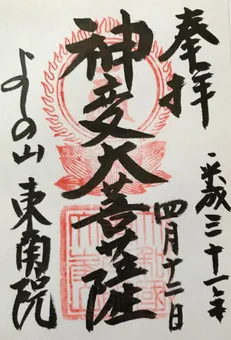 奉拝
平成三十一年
四月十二日
神変大菩薩
よしの山
東南院